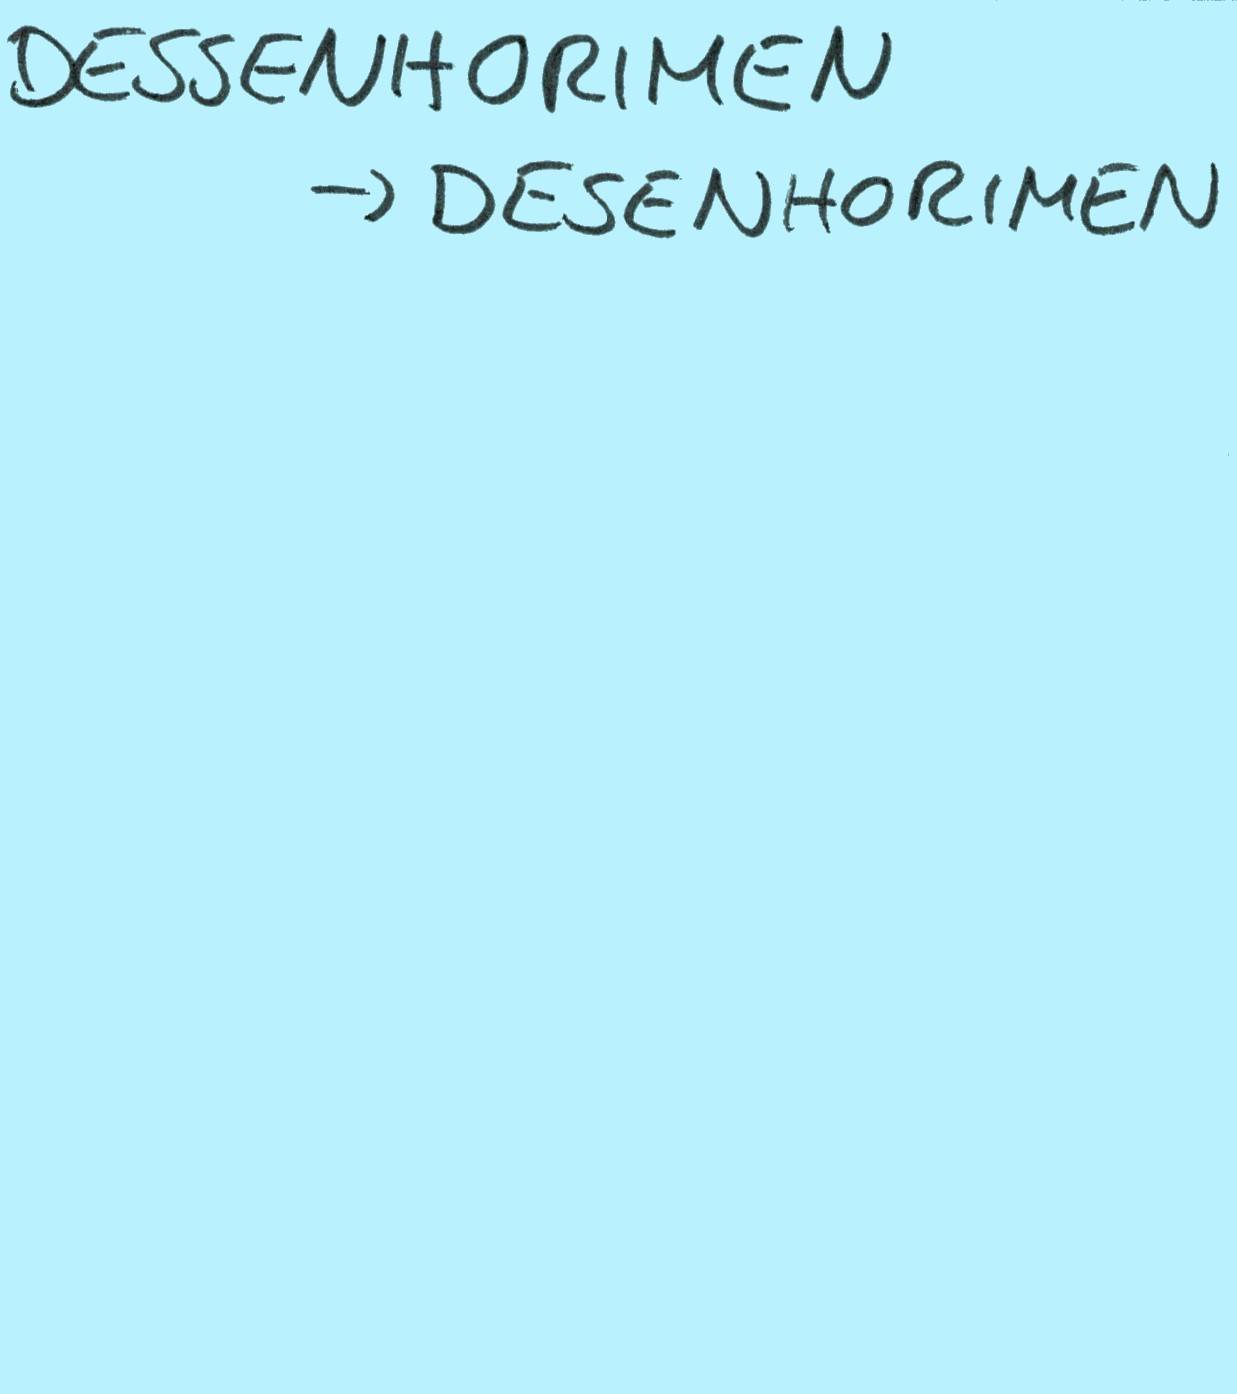 DESSENHORIMEN
→ DESENHORIMEN